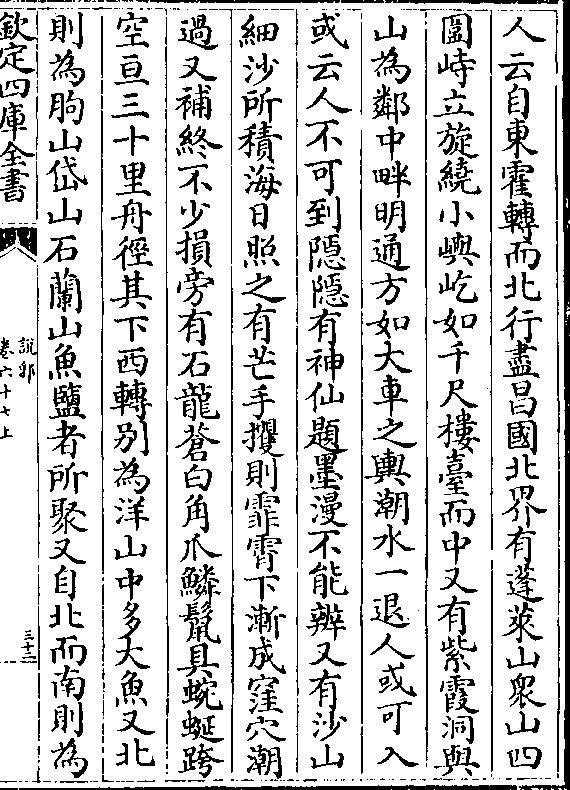 人云自東霍轉而北行盡昌國北界有蓬萊山衆山四
圍峙立旋繞小嶼屹如千尺樓臺而中又有紫霞洞與
山為鄰中畔明通方如大車之輿潮水一退人或可入
或云人不可到隱隱有神仙題墨漫不能辨又有沙山
細沙所積海日照之有芒手攫則霏霄下漸成窪穴潮
過又補終不少損旁有石龍蒼白角爪鱗鬣具蜿蜒跨
空亘三十里舟徑其下西轉别為洋山中多大魚又北
則為朐山岱山石蘭山魚鹽者所聚又自北而南則為
欽定四庫全書
說郛
卷六十七上
三十二